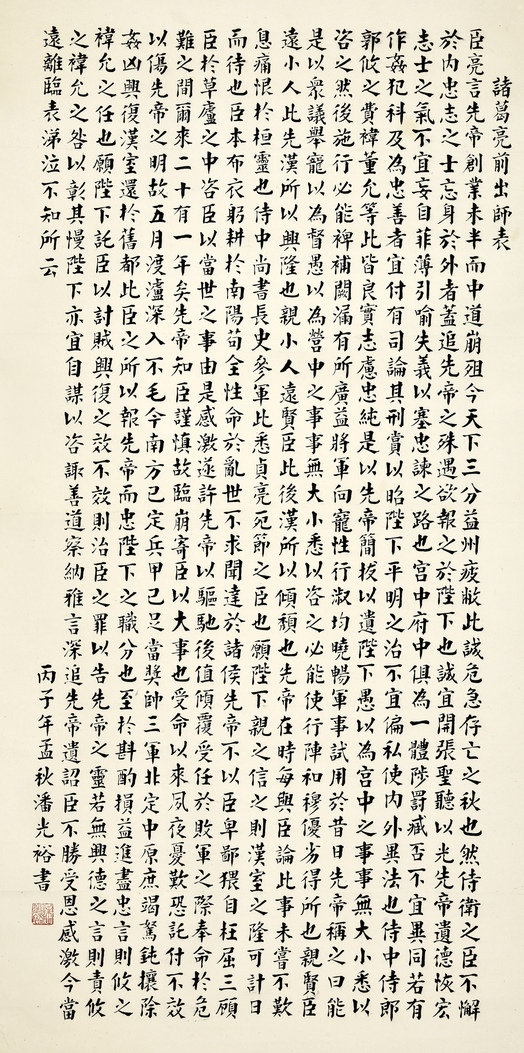 諸葛亮前出師表
臣亮言先帝創業未半而中道崩殂今天下三分益州疲敝此誠危急存亡之秋也然侍衛之臣不懈
於內忠志之士忘身於外者蓋追先帝之殊遇欲報之於陛下也誠宜開張聖聽以光先帝遺德恢宏
志士之氣不宜妄自菲薄引喻失義以塞忠諫之路也宮中府中俱為一體陟罰臧否不宜異同若有
作姦犯科及為忠善者宜付有司論其刑賞以昭陛下平明之治不宜偏私使內外異法也侍中侍郎
郭攸之費禕董允等此皆良實志慮忠純是以先帝簡拔以遺陛下愚以為宮中之事事無大小悉以
咨之然後施行必能裨補闕漏有所廣益將軍向寵性行淑均曉暢軍事試用於昔日先帝稱之曰能
是以眾議舉寵以為督愚以為營中之事事無大小悉以咨之必能使行陣和穆優劣得所也親賢臣
遠小人此先漢所以興隆也親小人遠賢臣此後漢所以傾頹也先帝在時每與臣論此事未嘗不歎
息痛恨於桓靈也侍中尚書長史參軍此悉貞亮死節之臣也願陛下親之信之則漢室之隆可計日
而待也臣本布衣躬耕於南陽苟全性命於亂世不求聞達於諸侯先帝不以臣卑鄙猥自枉屈三顧
臣於草廬之中咨臣以當世之事由是感激遂許先帝以驅馳後值傾覆受任於敗軍之際奉命於危
難之間爾來二十有一年矣先帝知臣謹慎故臨崩寄臣以大事也受命以來夙夜憂歎恐託付不效
以傷先帝之明故五月渡瀘深入不毛今南方已定兵甲已足當獎帥三軍北定中原庶竭駑鈍攘除
姦凶興復漢室還於舊都此臣之所以報先帝而忠陛下之職分也至於斟酌損益進盡忠言則攸之
禕允之任也願陛下託臣以討賊興復之效不效則治臣之罪以告先帝之靈若無興德之言則責攸
之禕允之咎以彰其慢陛下亦宜自謀以咨諏善道察納雅言深追先帝遺詔臣不勝受恩感激今當
遠離臨表涕泣不知所云
丙子年孟秋潘光裕書